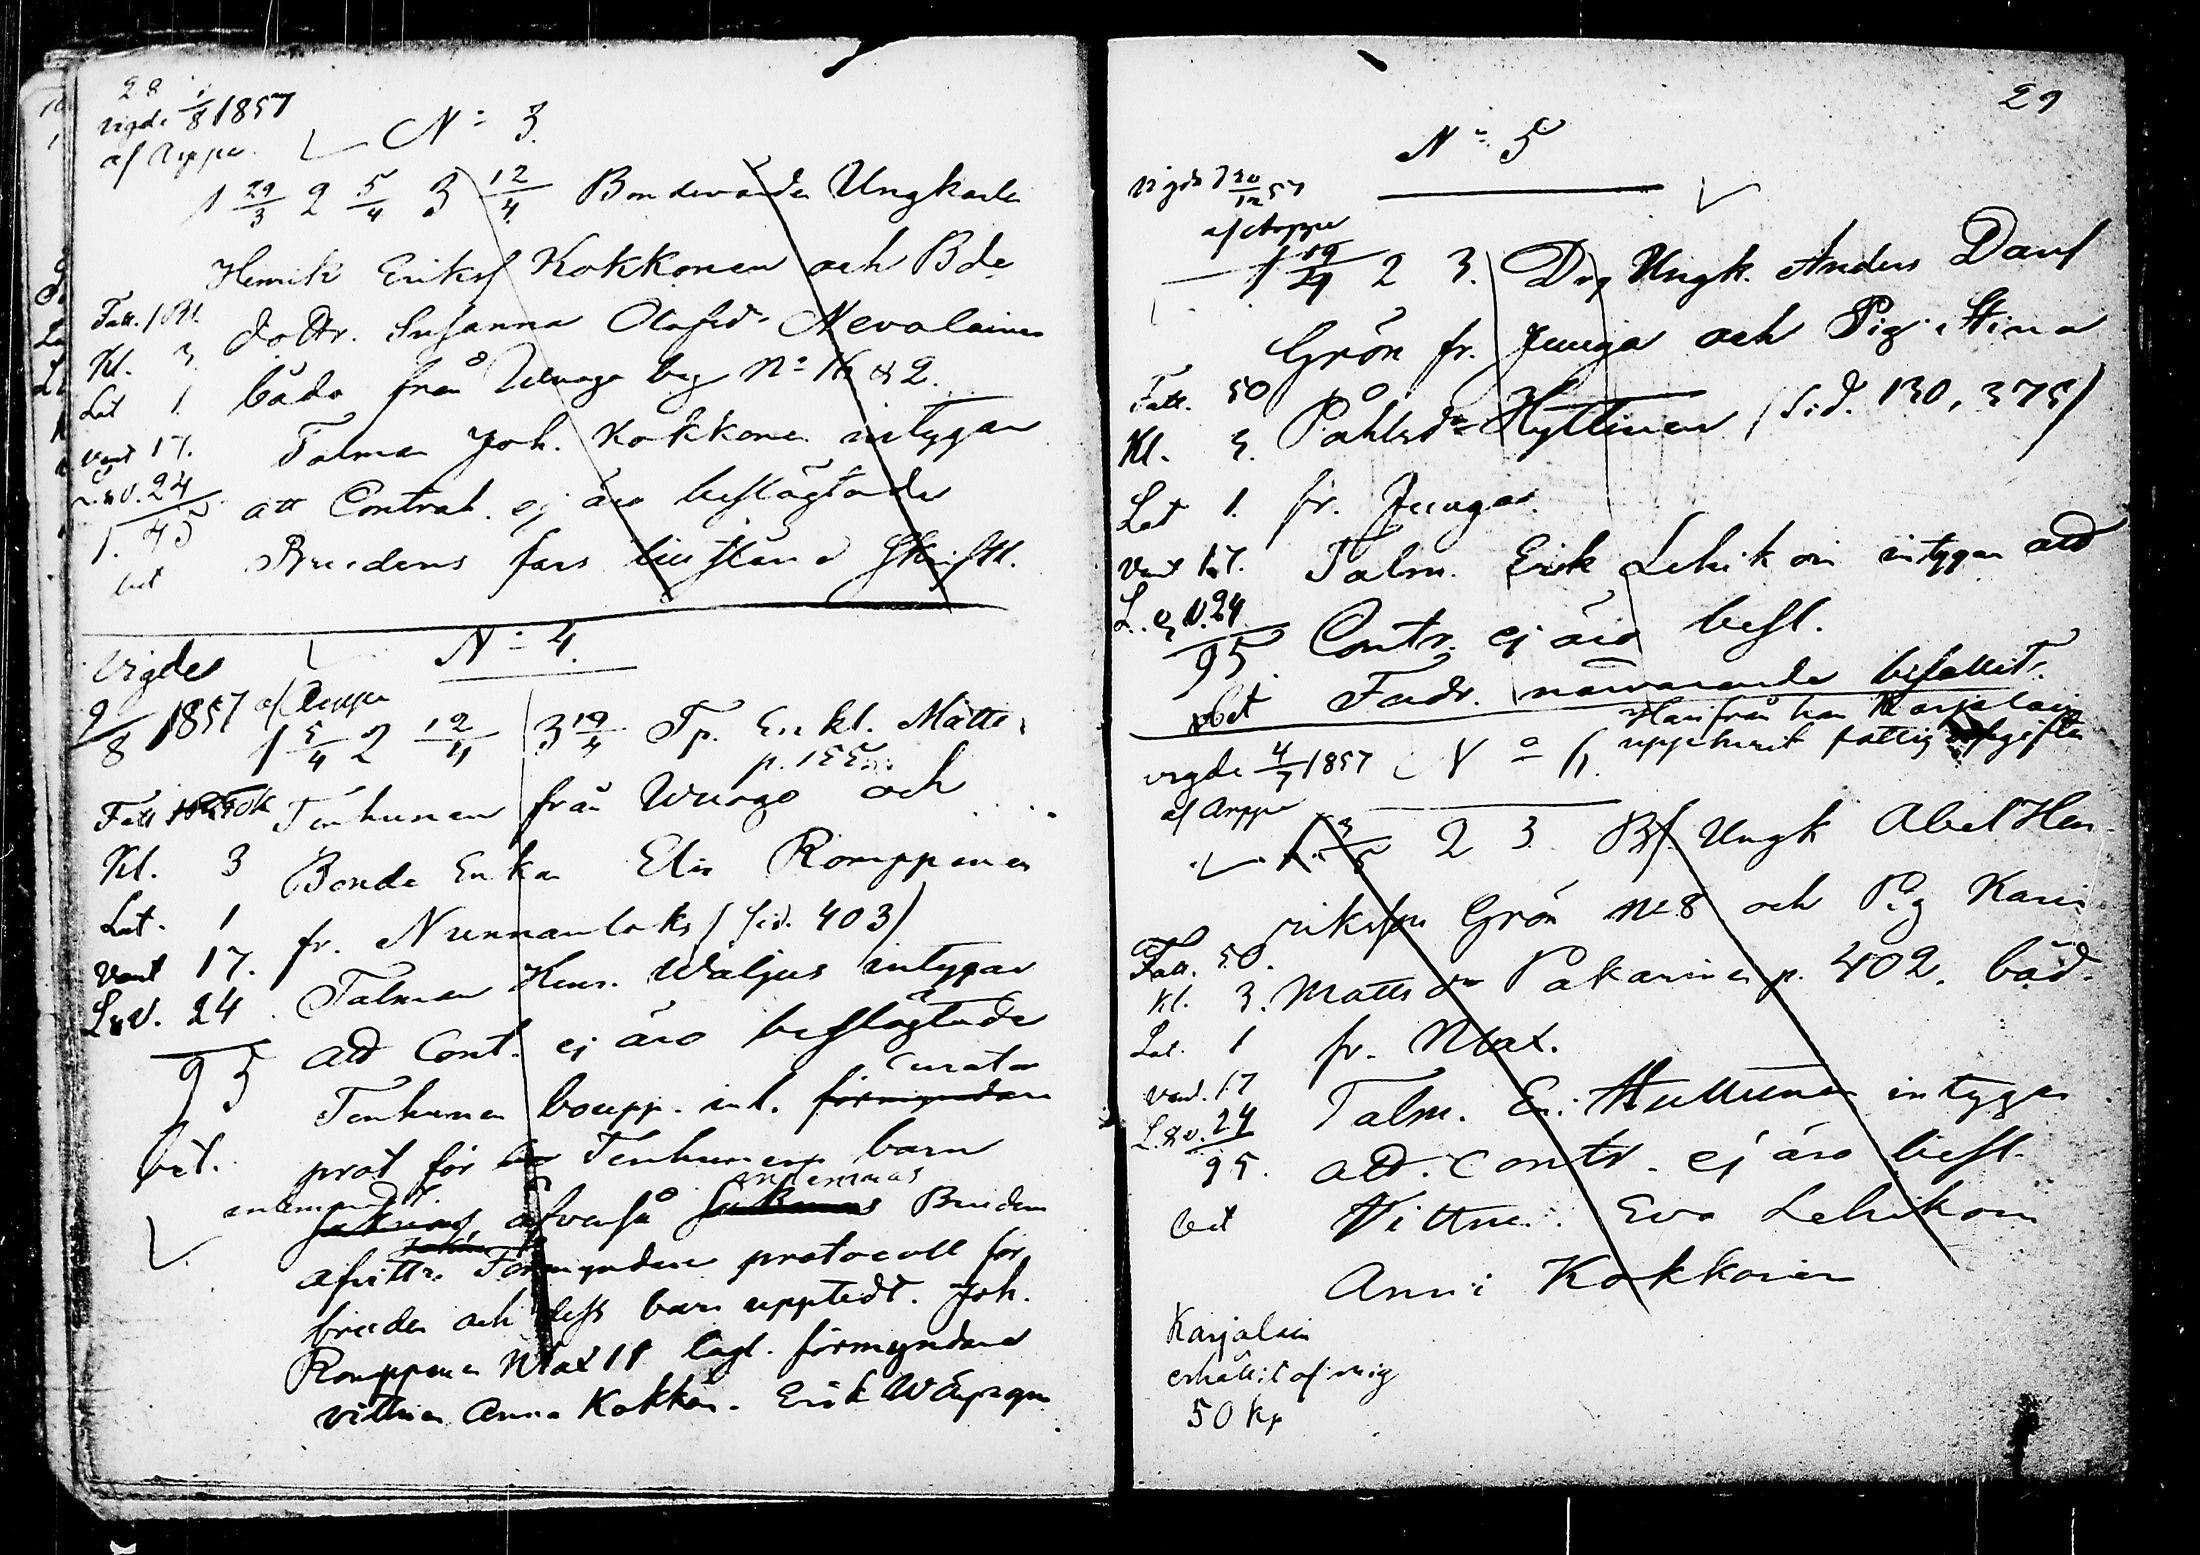 28
vigde 1/8 1857
af Arppe.
No 3.
1 29/3 2 5/4 3 12/4 Bondevarda Ungkarln
Henrik Eriksf Kokkonen och Bde
Fatt. 1 Rl. dottr. Susanna Olofsdr Nevalainen
Kl. 3 båda från by No 2.
Lat 1. Talman Joh. Kokkonen intygar
Vant 17. att Contrah. ej äro beslägtade
L. & V. 24 Brudens fars bifall Skriftl.
1. 45
bet
No 4.
Vigde
9/8 1857 af Arppe
1 5/4 2 12/4 3 19/4 Tp. Enkl. Matts
p. 155
Fatt 50k Tenhunen från Wuoggo och
Kl. 3 Bonde Enkan Elin Romppanen
Lat. 1 fr. Nunnanlaks (sid. 403)
Vant 17. Talman Henr. Waljus intygar
L & V. 24 att Cont. ej äro beslägtade
95 curator
Tenhunen boupp. inl. förmyndare
bet. prot för Tenhunens barn
änkemas
äfvenså Brudens
afvittr. Förmyndare protocoll för
bruden och dess barn upptedt. Joh.
Romppanen Nlax 11 lagl. förmyndare
vittnen Anna Kokkon. Erik
29
No 5
vigda d 20/12 57
af Arppe
1 19/4 2 3. Drg Ungk. Anders Dansf
Grön fr. Juuga och Pig. Stina
Fatt. 50 Påhlsdr Hyttinen (Sid. 130, 375)
Kl. 3.
Lat 1. fr. Juuga.
Vant 17. Talm. Erik Lehikoin intygar att
L. & V. 24 Contr. ej äro besl.
95. Fadr. närvarande bifallit.
bet
Härifrån har Karjalain
uppburit fattig afgiften
vigde 4/7 1857 No 6.
af Arppe
1 3/5 2 3 Bf. Ungk Abel Hen
riksson Grön No 8 och Pig Karin
Fatt. 50.
Kl. 3. Matts dr Pakarinen p. 402. båd.
Lat. 1 fr. Nlax.
Vant. 17 Talm. Er. Huttunen intygar
L. & V. 24
95. att. Contr. ej äro besl.
bet Vittnen. Eva Lehikoin
Anni Kokkonen
Karjalain
erhållit af mig
50 kp